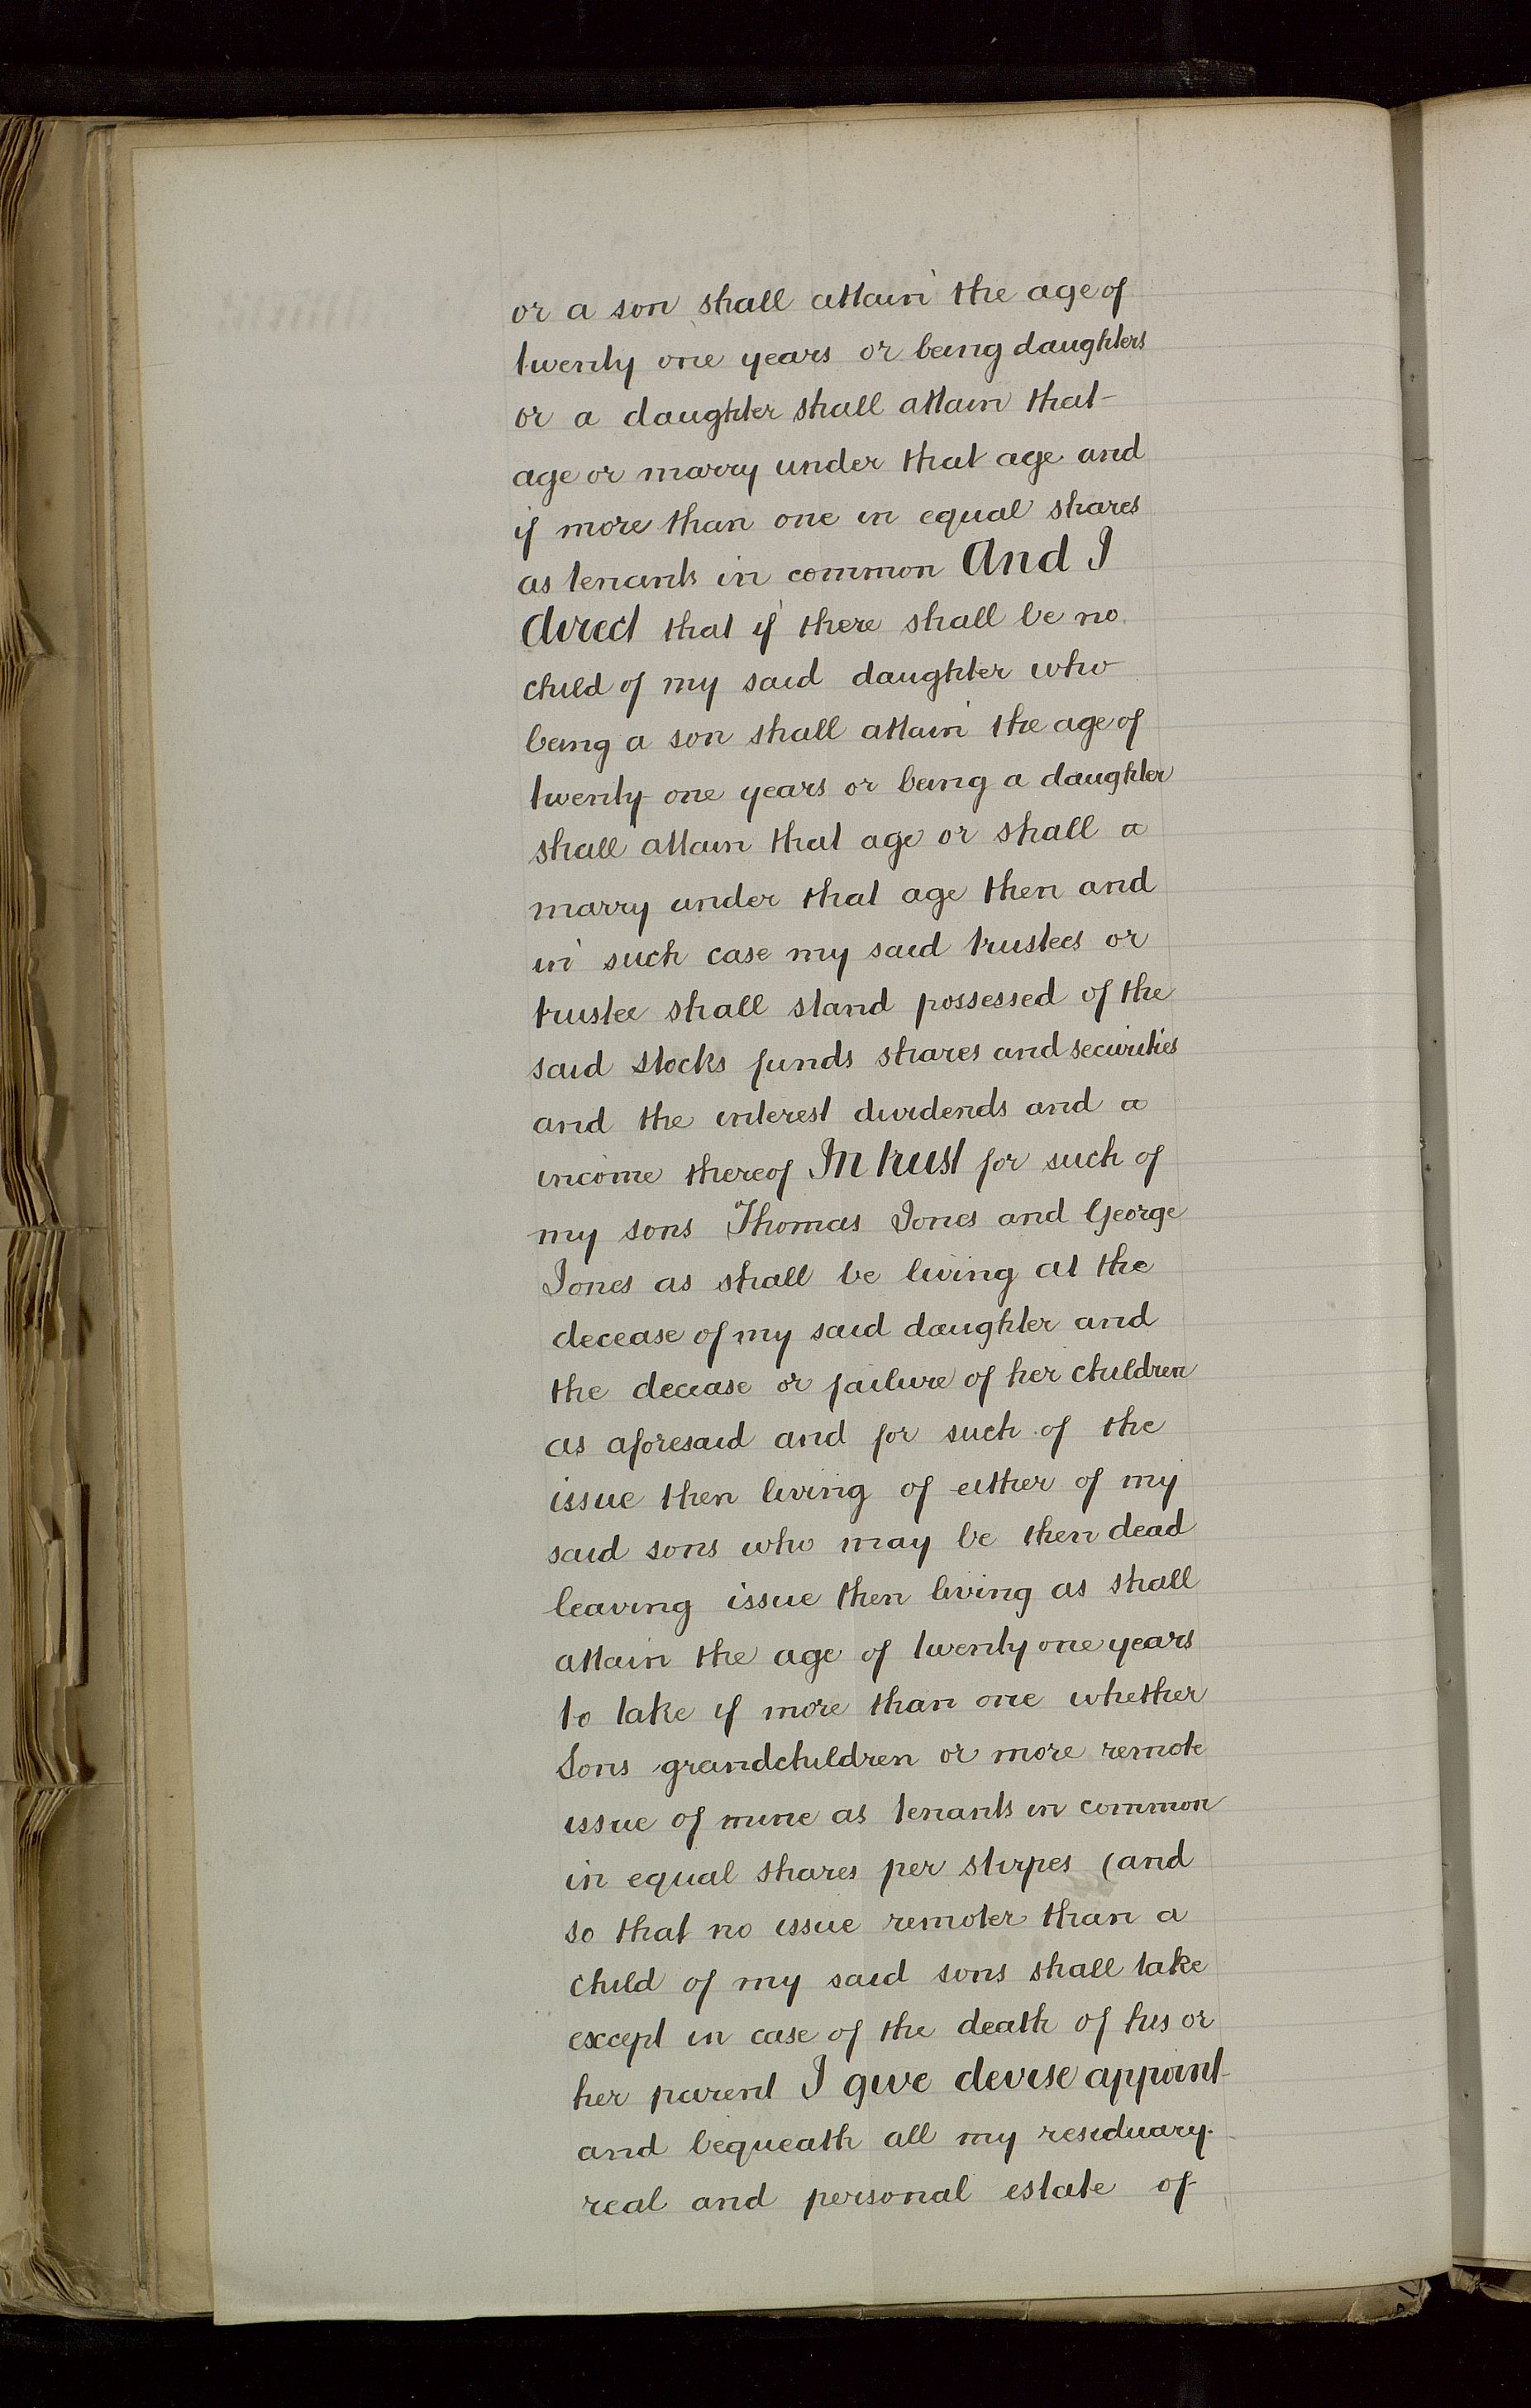 or a son shall attain the age of
twenty one years or being daughters
or a daughter shall attain that
age or marry under that age and
if more than one in equal shares
as tenants in common And I
direct that if there shall be no
child of my said daughter who
being a son shall attain the age of
twenty one years or being a daughter
shall attain that age or shall a
marry under that age then and
in such case my said trustees or
trustee shall stand possessed of the
said stocks funds shares and securities
and the interest dividends and a
income thereof In trust for such of
my sons Thomas Jones and George
Jones as shall be living at the
decease of my said daughter and
the decease or failure of her children
as aforesaid and for such of the
issue then living of either of my
said sons who may be then dead
leaving issue then living as shall
attain the age of twenty one years
to take if more than one whether
Sons grandchildren or more remote
issue of mine as tenants in common
in equal shares per stirpes (and
so that no issue remoter than a
child of my said sons shall take
except in case of the death of his or
her parent I give devise appoint
and bequeath all my residuary
real and personal estate of